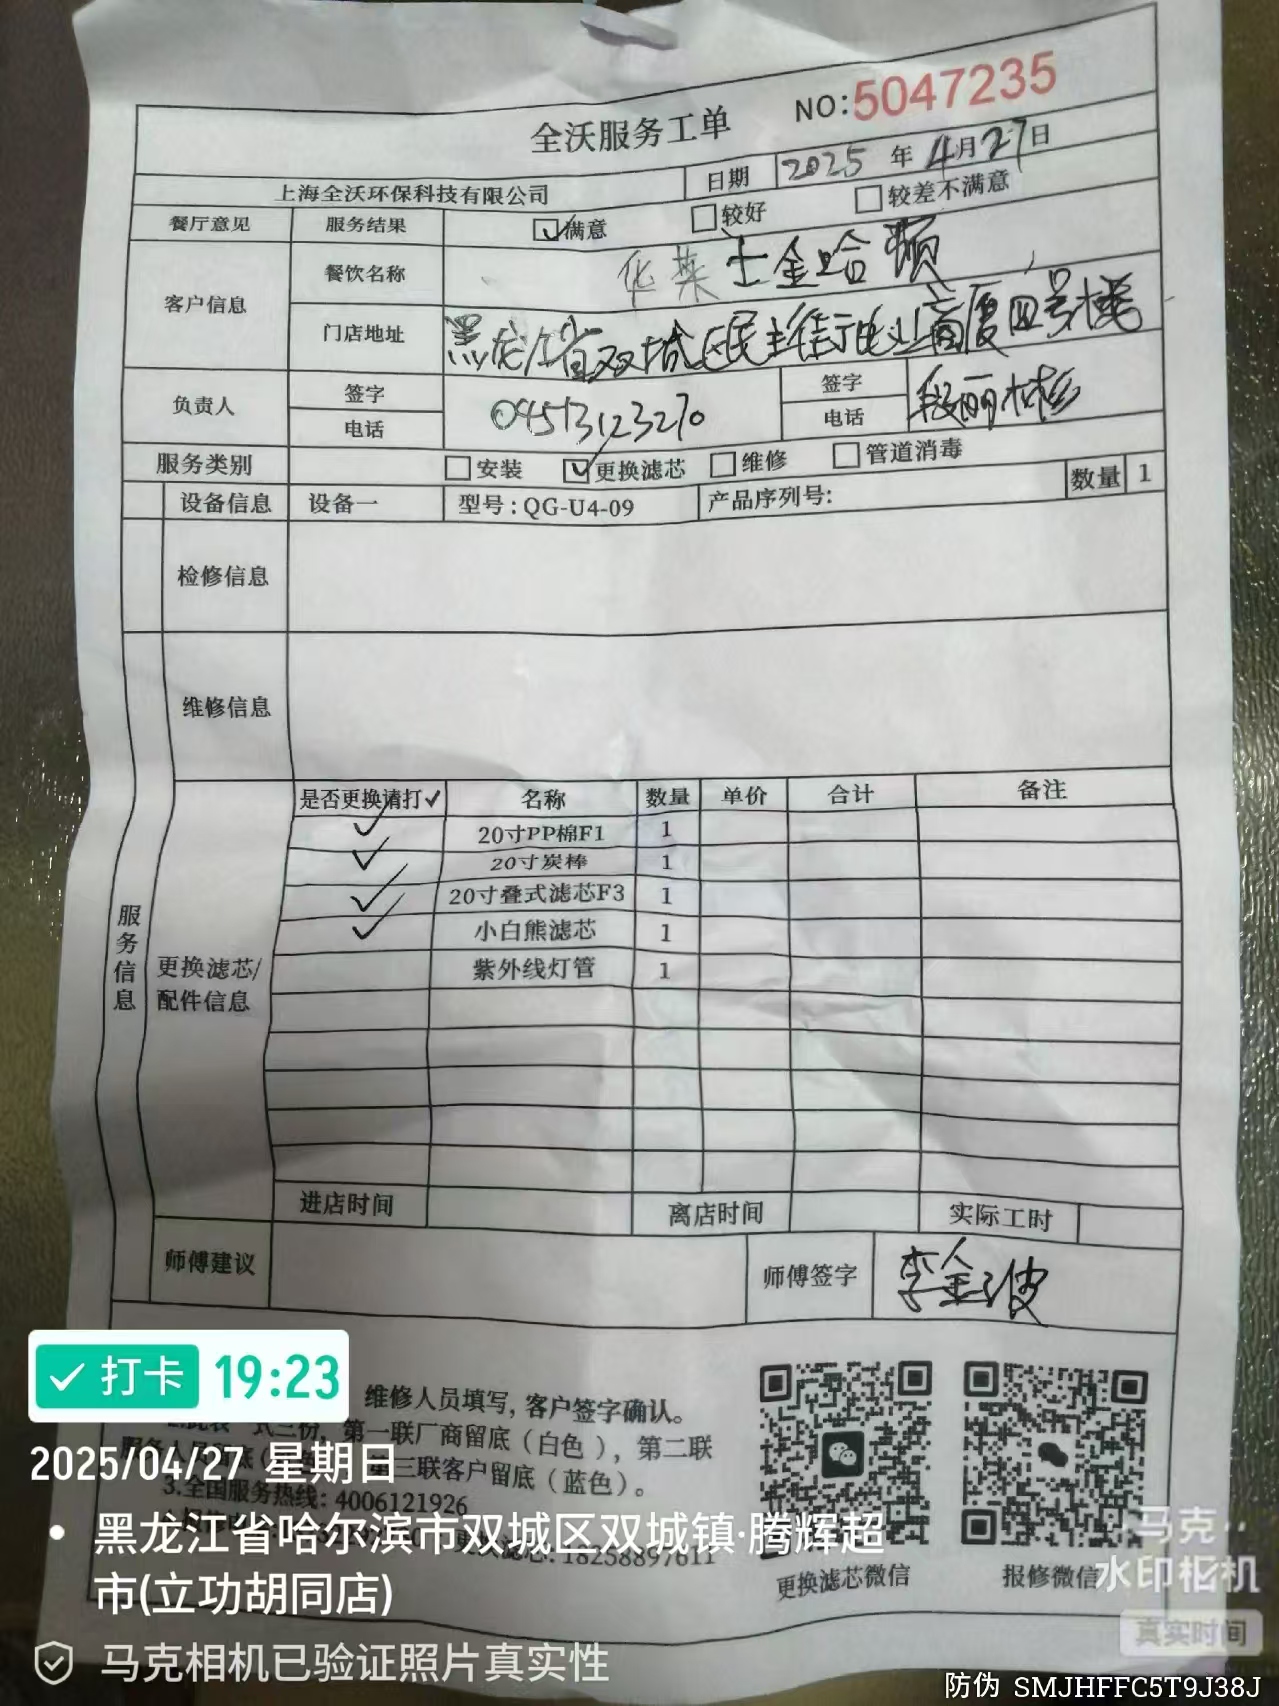 全沃服务工单 NO:5047235
上海全沃环保科技有限公司 日期 2025 年 4月27日
餐厅意见 服务结果 满意 较好 较差不满意
客户信息 餐饮名称 华莱士金哈顿
门店地址 黑龙江省双城区民主街电业商厦四号楼
负责人 签字 电话 04513123270 签字 电话
服务类别 安装 更换滤芯 维修 管道消毒
设备信息 设备一 型号:QG-U4-09 产品序列号: 数量 1
检修信息
维修信息
服务信息
更换滤芯/配件信息
是否更换请打✓ 名称 数量 单价 合计 备注
✓ 20寸PP棉F1 1
✓ 20寸炭棒 1
✓ 20寸叠式滤芯F3 1
✓ 小白熊滤芯 1
紫外线灯管 1
进店时间 离店时间 实际工时
师傅建议 师傅签字 李金波
维修人员填写,客户签字确认。
一式三份,第一联厂商留底(白色),第二联
第三联客户留底(蓝色)。
3.全国服务热线: 4006121926
更换滤芯:18258897611
更换滤芯微信 报修微信
✓打卡 19:23
2025/04/27 星期日
• 黑龙江省哈尔滨市双城区双城镇·腾辉超
市(立功胡同店)
马克相机已验证照片真实性
马克
水印相机
真实时间
防伪 SMJHFFC5T9J38J